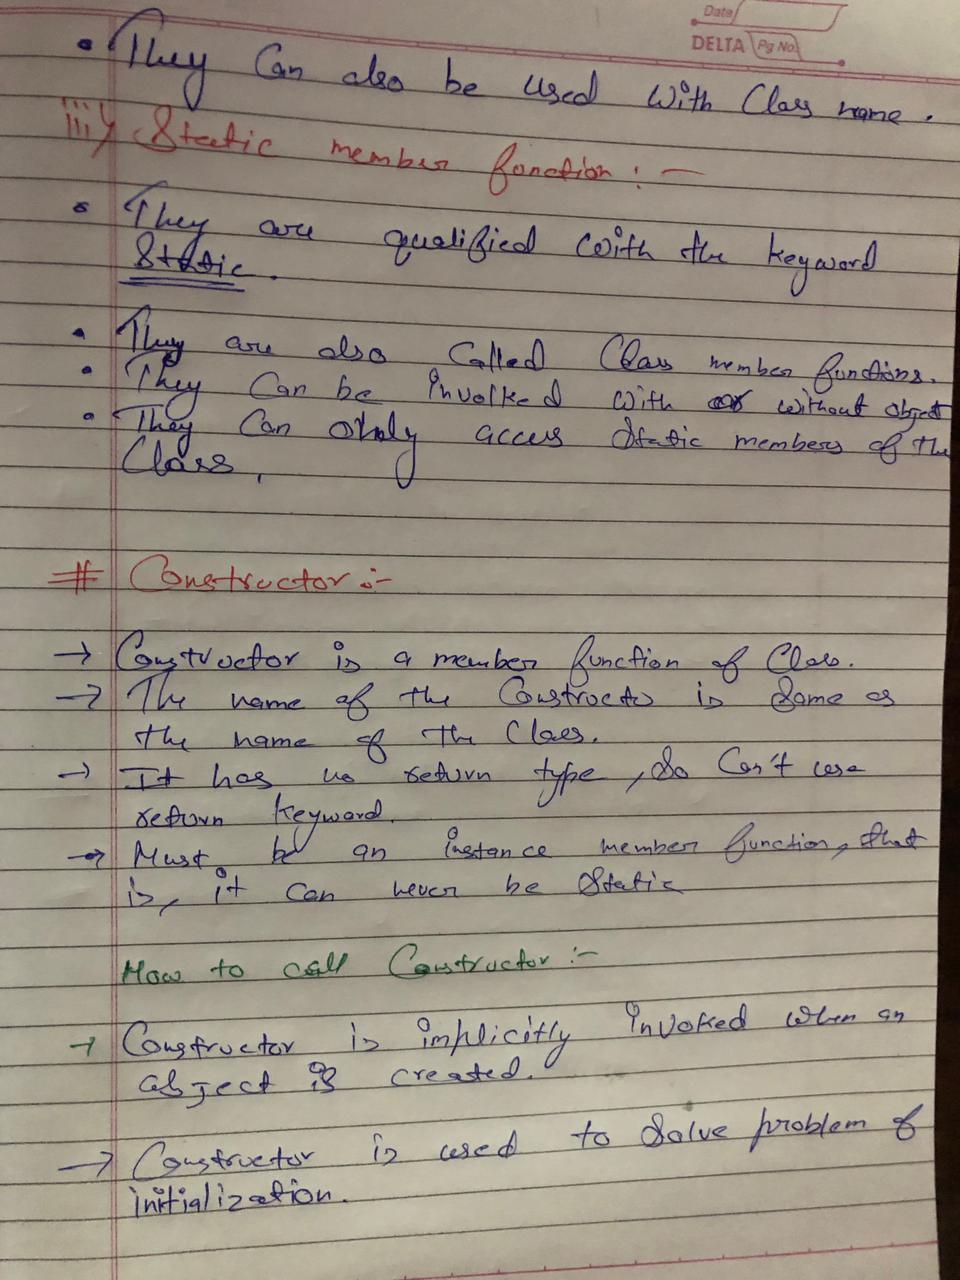 Date
DELTA Pg No.
• They Can also be used with Class name.
iii) Static member function :-
• They are qualified with the keyword
Static.
• They are also Called Class member functions.
• They Can be invoked with or without object
• They Can only access Static members of the
Class.
# Constructor :-
→ Constructor is a member function of Class.
→ The name of the Constructo is Same as
the name of the Class.
→ It has no return type, So Can't use
return keyword.
→ Must be an instance member function, that
is, it can never be Static
How to call Constructor :-
→ Constructor is implicitly invoked when an
object is created.
→ Constructor is used to Solve problem of
initialization.